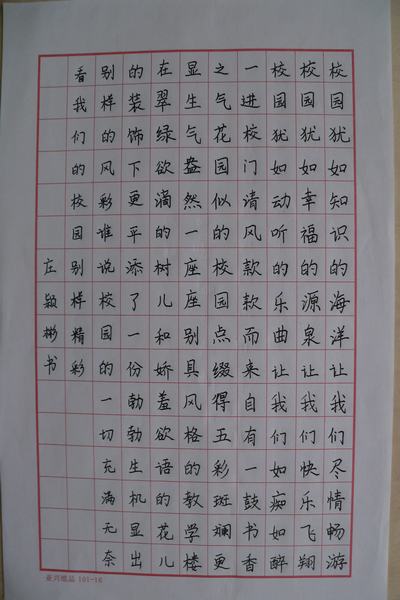 校园犹如知识的海洋让我们尽情畅游
校园犹如幸福的源泉让我们快乐飞翔
校园犹如动听的乐曲让我们如痴如醉
一进校门清风款款而来自有一鼓书香
之气花园似的校园点缀得五彩斑斓更
显生气盎然一座座别具风格的教学楼
在翠绿欲滴的树儿和娇羞欲语的花儿
的装饰下更平添了一份勃勃生机显出
别样的风彩谁说校园的一切充满无奈
看我们的校园别样精彩
庄颖彬书
亚兴纸品 101-16